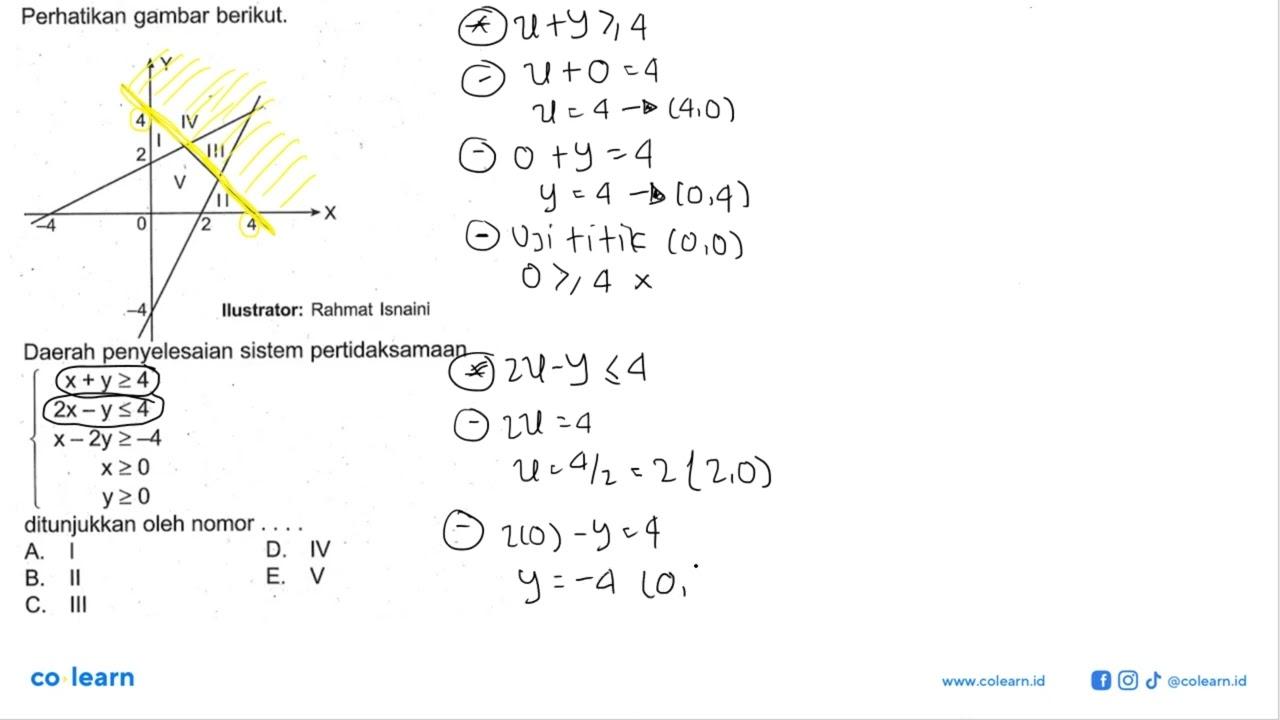 Perhatikan gambar berikut.
Y
4
IV
I
2
III
V
II
-4
0
2
4
X
-4
Ilustrator: Rahmat Isnaini
Daerah penyelesaian sistem pertidaksamaan
x + y ≥ 4
2x – y ≤ 4
x – 2y ≥ –4
x ≥ 0
y ≥ 0
ditunjukkan oleh nomor . . . .
A. I
B. II
C. III
D. IV
E. V
* x + y ≥ 4
- x + 0 = 4
x = 4 → (4,0)
- 0 + y = 4
y = 4 → (0,4)
- Uji titik (0,0)
0 ≥ 4 x
* 2x - y ≤ 4
- 2x = 4
x = 4/2 = 2 (2,0)
- 2(0) - y = 4
y = -4 (0,
co·learn
www.colearn.id
@colearn.id